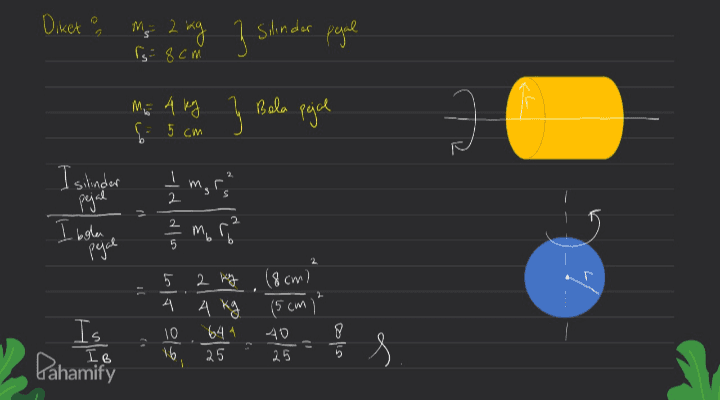 Diket : m_s = 2 kg } Silinder pejal
r_s = 8 cm
m_b = 4 kg } Bola pejal
r_b = 5 cm
r
I silinder pejal / I bola pejal = 1/2 m_s r_s² / 2/5 m_b r_b²
= 5/4 · 2 kg/4 kg · (8 cm)²/(5 cm)²
r
I_s/I_B = 10/16 · 64 4/25 = 40/25 = 8/5
Pahamify